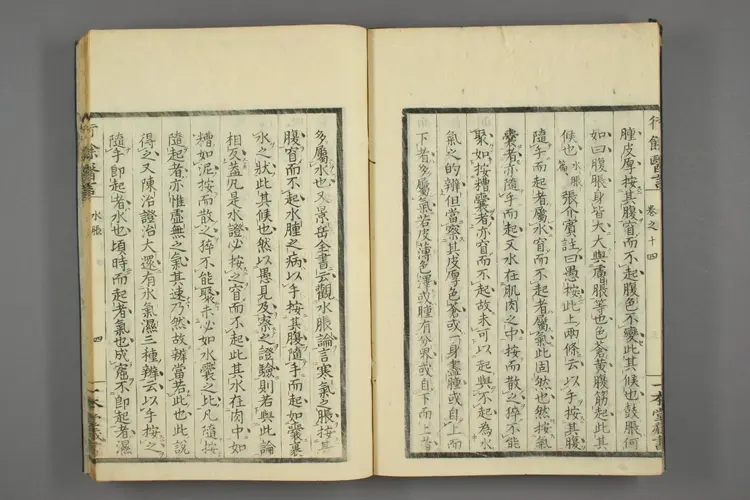 行餘醫言 卷之十四
腫皮厚按其腹窅而不起腹色不變此其候也鼓脹何
如曰腹脹身皆大大與膚脹等也色蒼黃腹筋起此其
候也 水脹篇 張介賓註曰愚按此上兩條云以手按其腹
隨手而起者屬水窅而不起者屬氣此固然也然按氣
囊者亦隨手而起又水在肌肉之中按而散之猝不能
聚如按糟囊者亦窅而不起故未可以起與不起為水
氣之的辨但當察其皮厚色蒼或一身盡腫或自上而
下者多屬氣若皮薄色澤或腫有分界或自下而上者
一本堂藏書
多屬水也又景岳全書云觀水脹論言寒氣之脹按其
腹窅而不起水腫之病以手按其腹隨手而起如裹
水之狀此其候也然以愚見及察之證驗則若與此論
相反蓋凡是水證必按之窅而不起此其水在肉中如
糟如泥按而散之猝不能聚未必如水囊之比凡隨按
隨起者亦惟虛無之氣其速乃然故辨當若此也此說
得之又陳治證治大還有水氣濕三種辨云以手按之
隨手即起者水也頃時而起者氣也成窟不即起者濕
行餘醫言 水脹 四
一本堂藏